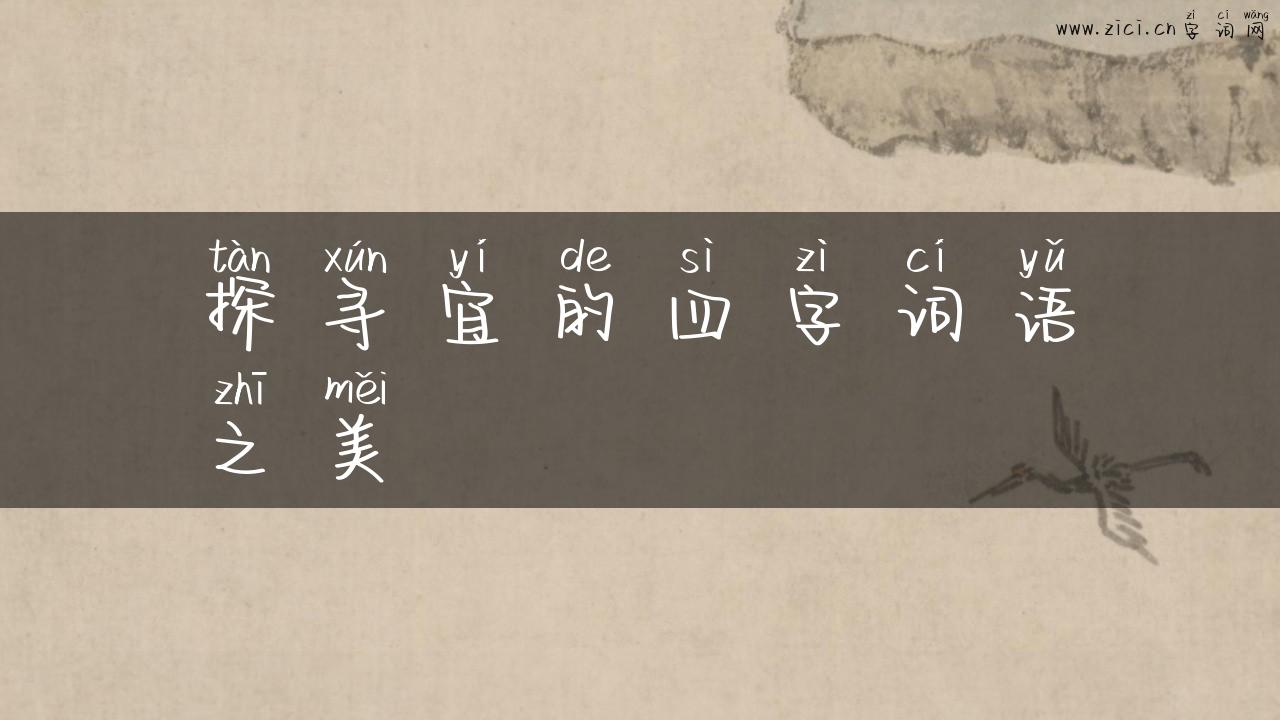 zì cí wǎng
www.zici.cn 字词网
tàn xún yí de sì zì cí yǔ
探寻宜的四字词语
zhī měi
之美